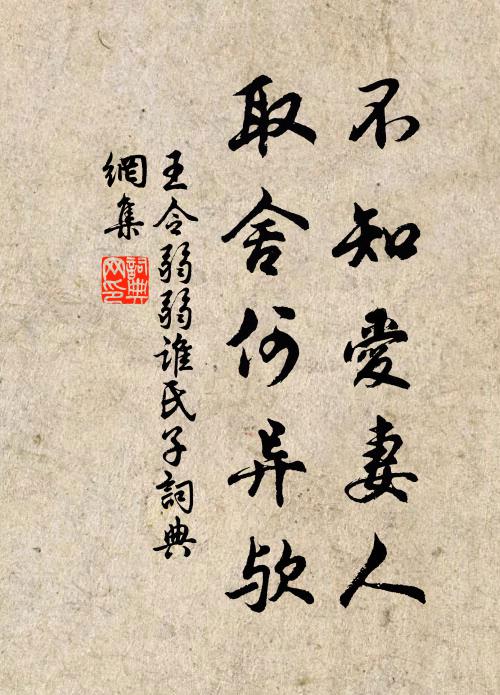 不知愛妻人
取舍何异欤
王令弱弱谁氏子詞典
網集
詞典网印